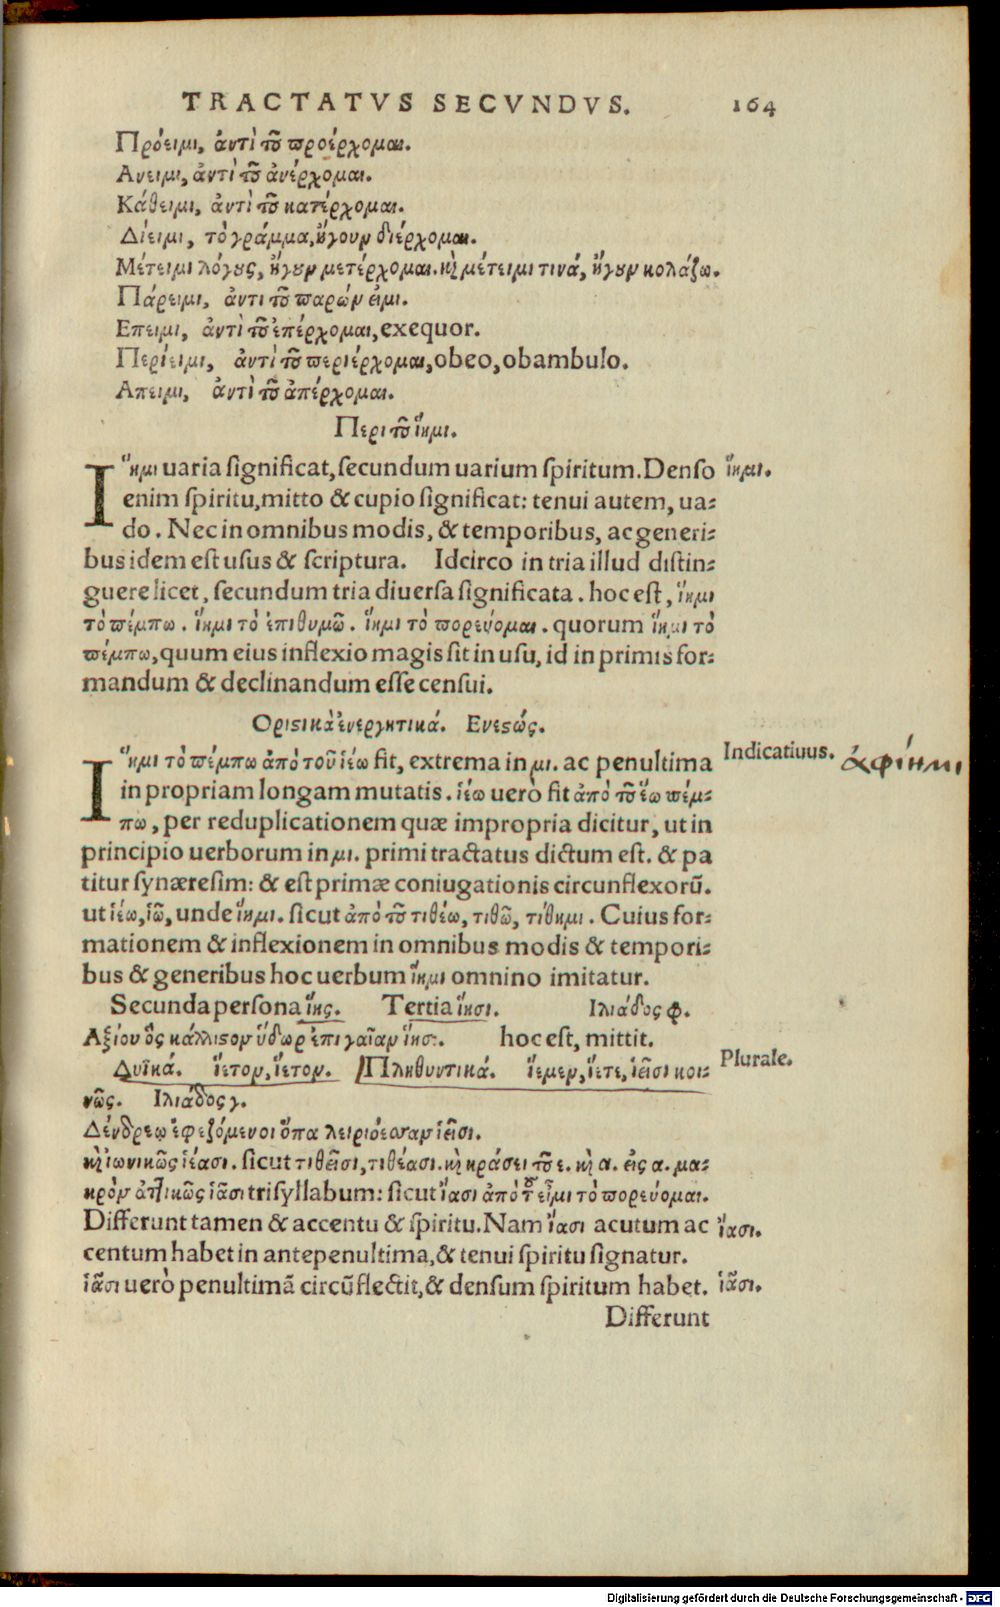 TRACTATVS SECVNDVS. 164
Πρόειμι, ἀντὶ τοῦ προέρχομαι.
Ανειμι, ἀντὶ τοῦ ἀνέρχομαι.
Κάθειμι, ἀντὶ τοῦ κατέρχομαι.
Δίειμι, τὸ γράμμα, ἤγουν διέρχομαι.
Μέτειμι λόγους, ἤγουν μετέρχομαι. καὶ μέτειμι τινά, ἤγουν κολάζω.
Πάρειμι, ἀντι τοῦ παρών εἰμι.
Επειμι, ἀντὶ τοῦ ἐπέρχομαι, exequor.
Περίειμι, ἀντὶ τοῦ περιέρχομαι, obeo, obambulo.
Απειμι, ἀντὶ τοῦ ἀπέρχομαι.
Περι τοῦ ἵημι.
Ἵημι uaria significat, secundum uarium spiritum. Denso ἵημι.
enim spiritu, mitto & cupio significat: tenui autem, ua-
do. Nec in omnibus modis, & temporibus, ac generi-
bus idem est usus & scriptura. Idcirco in tria illud distin-
guere licet, secundum tria diuersa significata. hoc est, ἵημι
τὸ πέμπω. ἵημι τὸ ἐπιθυμῶ. ἵημι τὸ πορεύομαι. quorum ἵημι τὸ
πέμπω, quum eius inflexio magis sit in usu, id in primis for-
mandum & declinandum esse censui.
Οριστικὰ ἐνεργητικά. Ενεστώς.
Ἵημι τὸ πέμπω ἀπὸ τοῦ ἱέω fit, extrema in μι. ac penultima Indicatiuus. ἀφίημι
in propriam longam mutatis. ἱέω uerò fit ἀπὸ τοῦ ἕω πέμ-
πω, per reduplicationem quæ impropria dicitur, ut in
principio uerborum in μι. primi tractatus dictum est. & pa
titur synæresim: & est primæ coniugationis circunflexorū.
ut ἱέω, ἱῶ, unde ἵημι. sicut ἀπὸ τοῦ τιθέω, τιθῶ, τίθημι. Cuius for-
mationem & inflexionem in omnibus modis & tempori-
bus & generibus hoc uerbum ἵημι omnino imitatur.
Secunda persona ἵης. Tertia ἵησι. Ιλιάδος φ.
Αξίου ὃς κάλλιστον ὕδωρ ἐπι γαῖαν ἵησι. hoc est, mittit.
Δυϊκά. ἵετον, ἵετον. Πληθυντικά. ἵεμεν, ἵετε, ἱεῖσι κοι- Plurale.
νῶς. Ιλιάδος γ.
Δένδρεῳ ἐφεζόμενοι ὄπα λειριόεσσαν ἱεῖσι.
καὶ ἰωνικῶς ἱέασι. sicut τιθεῖσι, τιθέασι. καὶ κράσει τοῦ ε. καὶ α. εἰς α. μα-
κρὸν ἀττικῶς ἱᾶσι trisyllabum: sicut ἴασι ἀπὸ τοῦ εἶμι τὸ πορεύομαι.
Differunt tamen & accentu & spiritu. Nam ἴασι acutum ac ἴασι.
centum habet in antepenultima, & tenui spiritu signatur.
ἱᾶσι uerò penultimā circūflectit, & densum spiritum habet. ἱᾶσι.
Differunt
Digitalisierung gefördert durch die Deutsche Forschungsgemeinschaft - DFG